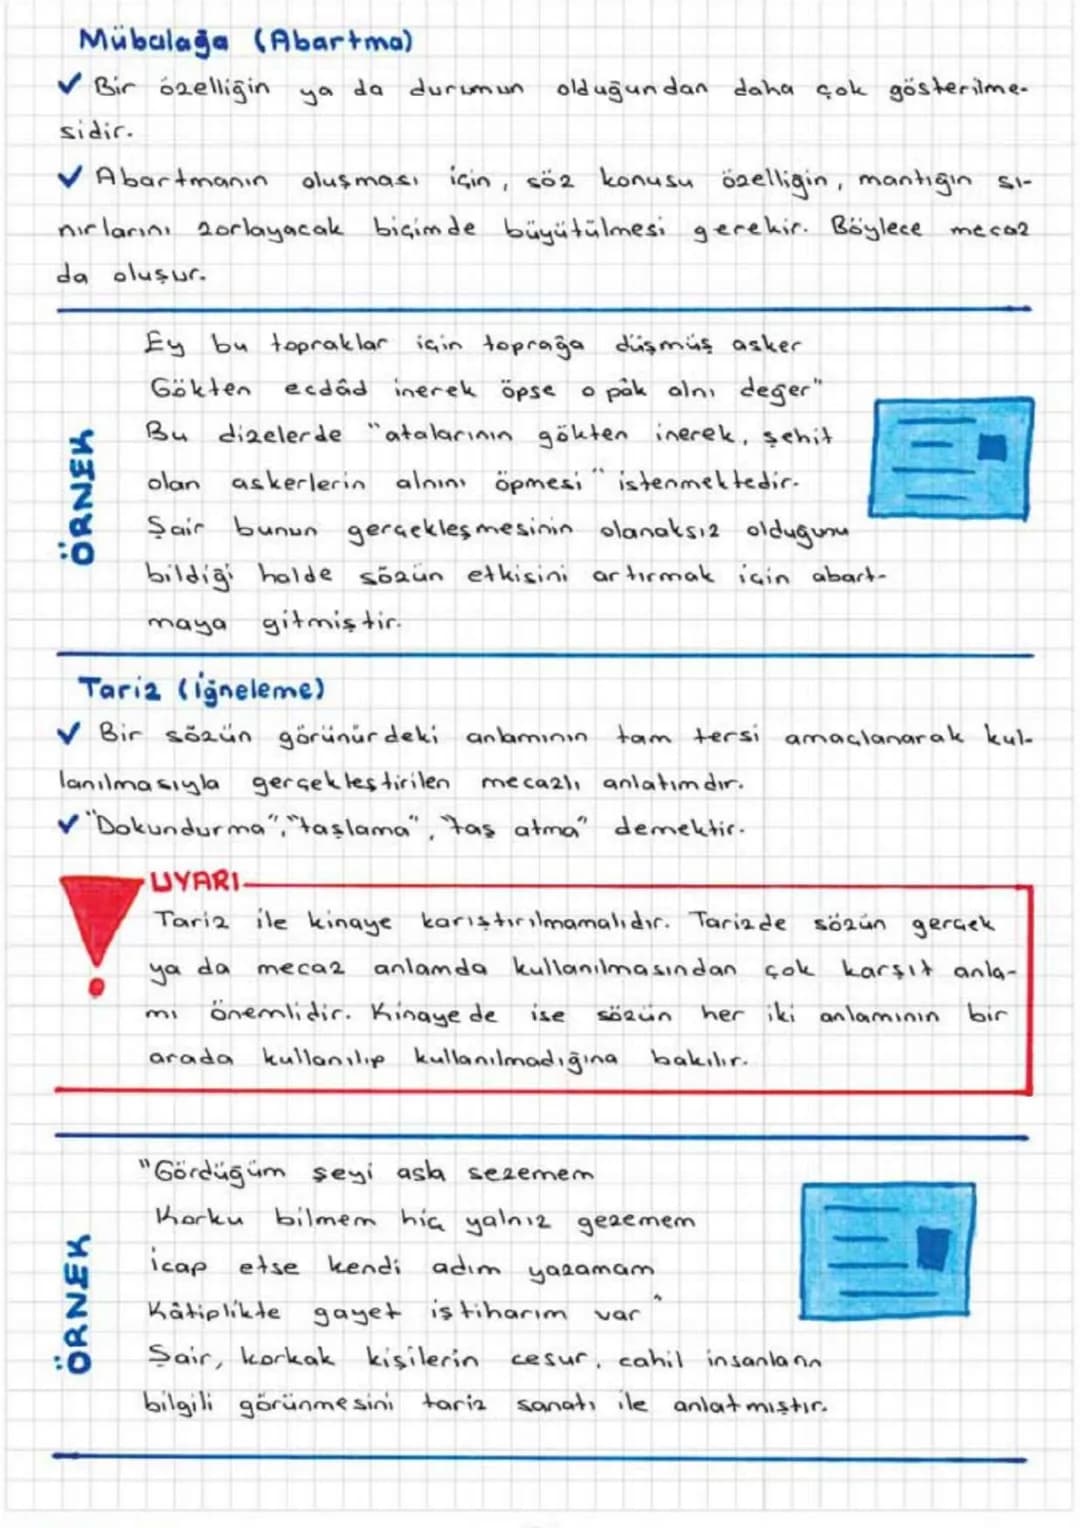 Mübalağa (Abartma)
✓ Bir özelliğin ya da durumun olduğundan daha çok gösterilme-
sidir.
✓ Abartmanın oluşması için, söz konusu özelliğin, mantığın sı-
nırlarını zorlayacak biçimde büyütülmesi gerekir. Böylece mecaz
da oluşur.
ÖRNEK
Ey bu topraklar için toprağa düşmüş asker
Gökten ecdâd inerek öpse o pâk alnı değer"
Bu dizelerde "atalarının gökten inerek, şehit
olan askerlerin alnını öpmesi" istenmektedir.
Şair bunun gerçekleşmesinin olanaksız olduğunu
bildiği halde sözün etkisini artırmak için abart-
maya gitmiştir.
Tariz (iğneleme)
✓ Bir sözün görünürdeki anlamının tam tersi amaçlanarak kul-
lanılmasıyla gerçekleştirilen mecazlı anlatımdır.
✓ "Dokundurma", "taşlama", "taş atma" demektir.
UYARI
Tariz ile kinaye karıştırılmamalıdır. Tarizde sözün gerçek
ya da mecaz anlamda kullanılmasından çok karşıt anla-
mı önemlidir. Kinayede ise sözün her iki anlamının bir
arada kullanılıp kullanılmadığına bakılır.
ÖRNEK
"Gördüğüm şeyi asla sezemem
Korku bilmem hiç yalnız gezemem
İcap etse kendi adım yazamam
Kâtiplikte gayet iştiharım var"
Şair, korkak kişilerin cesur, cahil insanların
bilgili görünmesini tariz sanatı ile anlatmıştır.